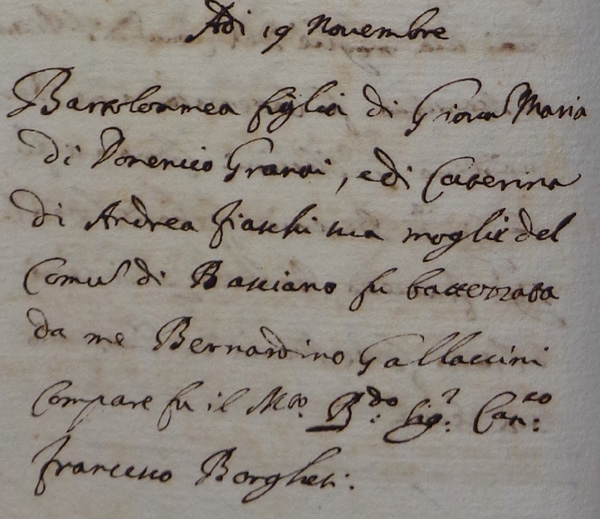 Adi 19 Novembre
Bartolommea figlia di Giovan Maria
di Domenico Granai, e di Caterina
di Andrea Fiaschi sua moglie del
Comun di Basciano fu battezzata
da me Bernardino Gallaccini
Compare fu il Mto. R.do Sig.r Can.co
Francesco Borghesi.